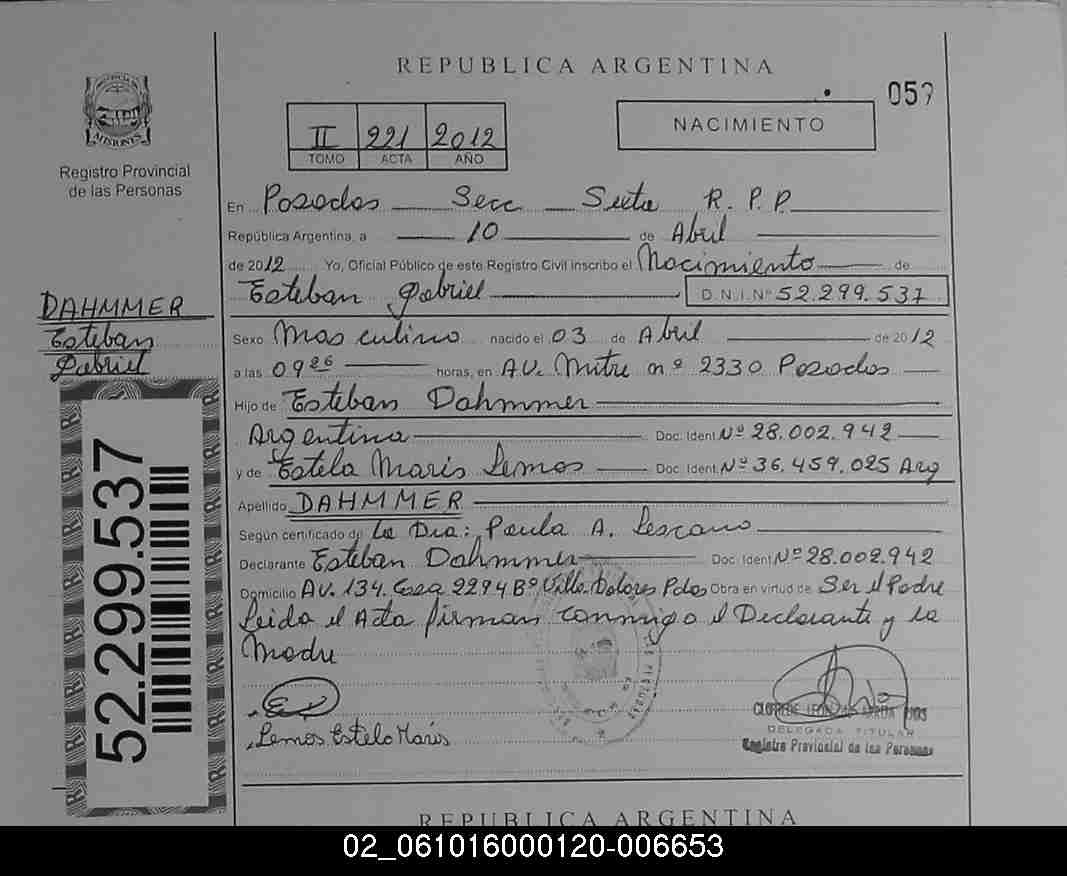 REPUBLICA ARGENTINA
MISIONES
Registro Provincial
de las Personas
II 221 2012
TOMO ACTA AÑO
NACIMIENTO
En Posadas Secc Sexta R. P. P.
República Argentina, a 10 de Abril
de 2012 Yo, Oficial Público de este Registro Civil inscribo el Nacimiento de
Esteban Gabriel D.N.I.Nº 52.299.537
DAHMMER
Esteban
Gabriel
Sexo Masculino nacido el 03 de Abril de 2012
a las 09 26 horas, en AV. Mitre nº 2330 Posadas
Hijo de Esteban Dahmmer
Argentino Doc. Ident. Nº 28.002.942
y de Estela Maris Lemos Doc. Ident. Nº 36.459.025 Arg
Apellido DAHMMER
Según certificado de La Dra: Paula A. Lescano
Declarante Esteban Dahmmer Doc. Ident. Nº 28.002.942
Domicilio AV. 134 Casa 2294 Bº Villa Dolores Pdas Obra en virtud de Ser el Padre
Leida el Acta firman conmigo el Declarante y la
Madre
52.299.537
Lemos Estela Maris
DELEGADA TITULAR
Registro Provincial de las Personas
REPUBLICA ARGENTINA
02_061016000120-006653